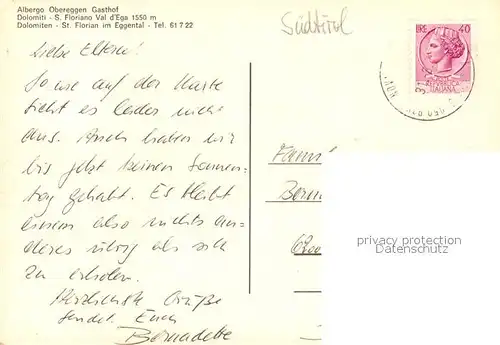 Albergo Obereggen Gasthof
Dolomiti - S. Floriano Val d'Ega 1550 m
Dolomiten - St. Florian im Eggental - Tel. 61 7 22
Südtirol
LIRE 40
REPUBBLICA
ITALIANA
Liebe Eltern!
So wie auf der Karte
sieht es leider nicht
aus. Auch haben wir
bis jetzt keinen Sonnen-
tag gehabt. Es bleibt
einem also nichts an-
deres übrig als sich
zu erholen.
Herzlichste Grüße
sendet Euch
Bernadette
Fami
privacy protection
Datenschutz